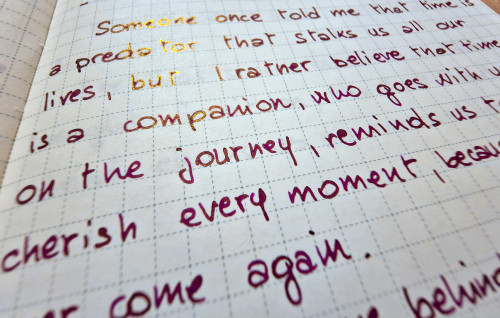 Someone once told me that time is
a predator that stalks us all our
lives, but I rather believe that time
is a companion, who goes with
on the journey, reminds us
cherish every moment,
come again.
behind